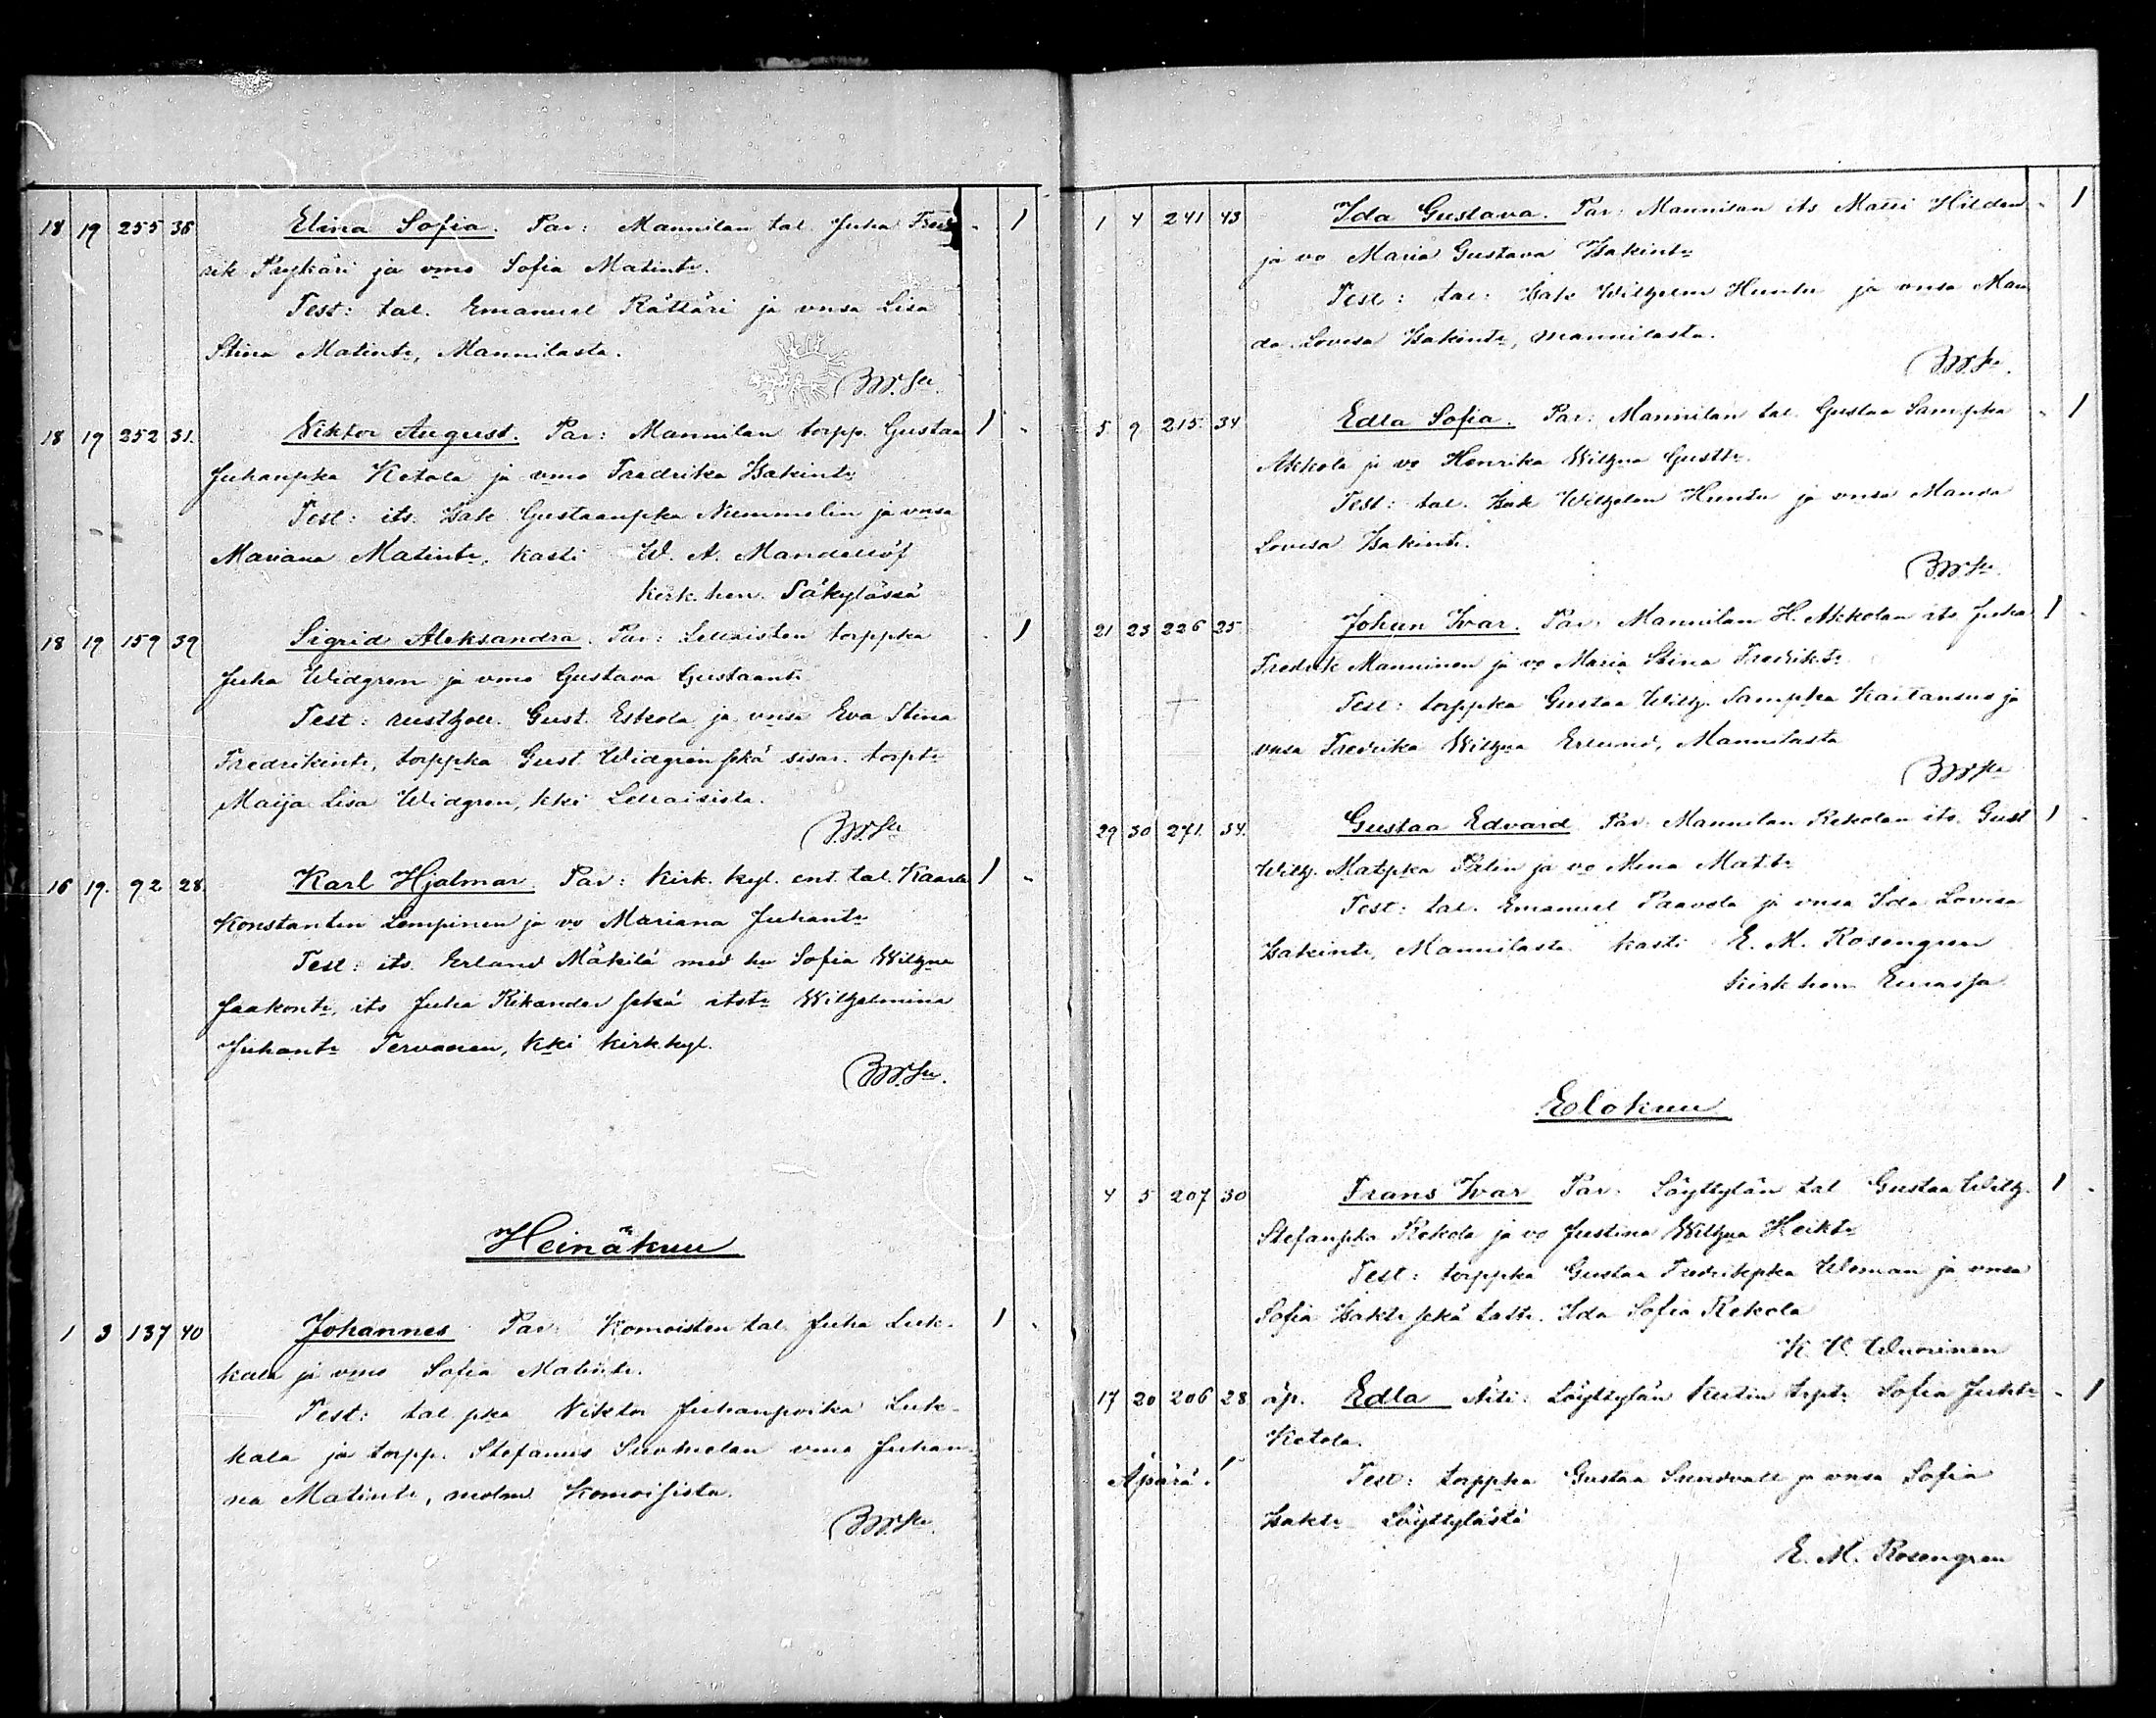 18 19 255 38 Elina Sofia. Par: Mannilan tal. Juha Fred
rik Prykäri ja vmo Sofia Matintr.
Test: tal. Emanuel Rättäri ja vnsa Lisa
Stina Matintr, Mannilasta.
18 19 252 31. Viktor August. Par: Mannilan torpp. Gustaa 1 -
Juhanpka Ketola ja vmo Fredrika Isakintr
Test: its. Isak Gustaanpka Nummelin ja vnsa
Mariana Matintr, kasti W. A. Mandellöf
kirk.hen. Säkylässä
18 19 159 39 Sigrid Aleksandra. Par: Lellaisten torppka - 1
Juha Widgren ja vmo Gustava Gustaantr
Test: rusthol. Gust. Eskola ja vnsa Eva Stina
Fredrikintr, torppka Gust. Widgren sekä sisar. torptr
Maija Lisa Widgren, kki Lellaisista.
16 19. 92 28. Karl Hjalmar. Par: kirk. kyl. ent. tal. Kaarle 1 -
Konstantin Lempinen ja vo Mariana Juhantr
Test: its. Erland Mäkilä med hu Sofia Wilhna
Jaakontr, its Juha Rikander sekä itstr Wilhelmina
Juhantr Tervanen, kki kirk.kyl.
Heinäkuu
1 3 137 40 Johannes Par: Komoisten tal. Juha Luk- 1 -
kala ja vmo Sofia Matintr.
Test: tal. pka Viktor Juhanpoika Luk-
kala ja torpp. Stefanus Suvuelan vmo Juhan-
na Matintr, molm. Komoisista.
1 4 241 43 Ida Gustava. Par: Mannilan its Matti Hilden - 1
ja vo Maria Gustava Isakintr
Test: tal: Isak Wilhelm Huntu ja vnsa Man
da Lovisa Isakintr, Mannilasta.
5. 9 215. 34 Edla Sofia. Par: Mannilan tal. Gustaa Sampka - 1
Akkola ja vo Henrika Wilhna Gusttr.
Test: tal. Isak Wilhelm Huntu ja vnsa Manda
Lovisa Isakintr.
21 23 226 25 Johan Ivar. Par: Mannilan H. Akkolan its Juha 1 -
Fredrik Manninen ja vo Maria Stina Fredriktr.
Test: torppka Gustaa Wilh. Sampka Kaitansuo ja
vnsa Fredrika Wilhna Erlund, Mannilasta
29 30 271. 34. Gustaa Edvard Par. Mannilan Rekolan its. Gust 1 -
Wilh. Matpka Palin ja vo Mina Mattr
Test: tal. Emanuel Paavola ja vnsa Ida Lovisa
Isakintr, Mannilasta. kasti E. M. Rosengren
kirk hen Eurassa.
Elokuu
4 5 207 30 Frans Ivar Par. Löyttylän tal Gustaa Wilh. 1 -
Stefanpka Rekola ja vo Justina Wilhna Heiktr
Test: torppka Gustaa Fredrikpka Uloman ja vnsa
Sofia Isaktr sekä taltr. Ida Sofia Rekola
K. V. Wuorinen
17 20 206 28 äp. Edla Äiti: Löyttylän Kutin torptr Sofia Juhtr - 1
Ketola.
Äpärä.! Test: torppka Gustaa Sundvall ja vnsa Sofia
Isaktr Löyttylästä
E. M. Rosengren